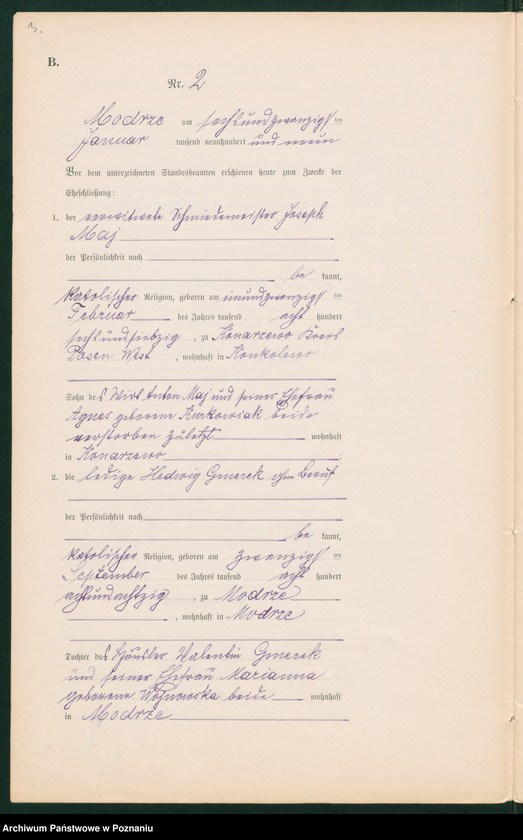 3.
B.
Nr. 2
Modrze am sechsundzwanzigsten
Januar tausend neunhundert und neun
Vor dem unterzeichneten Standesbeamten erschienen heute zum Zwecke der
Eheschließung:
1. der verwitwete Schmiedemeister Joseph
Maj
der Persönlichkeit nach
be kannt,
katolischer Religion, geboren am einundzwanzigsten
Februar des Jahres tausend acht hundert
sechsundsiebzig, zu Konarzewo Kreis
Posen West, wohnhaft in Konkolewo
Sohn des Wirts Anton Maj und seiner Ehefrau
Agnes geborene Kurkowiak beide
verstorben zuletzt wohnhaft
in Konarzewo;
2. die ledige Hedwig Gmerek ohne Beruf
der Persönlichkeit nach
be kannt,
katolischer Religion, geboren am zwanzigsten
September des Jahres tausend acht hundert
achtundachtzig, zu Modrze
, wohnhaft in Modrze
Tochter des Häusler Valentin Gmerek
und seiner Ehefrau Marianna
geborene Wojnowska beide wohnhaft
in Modrze
Archiwum Państwowe w Poznaniu